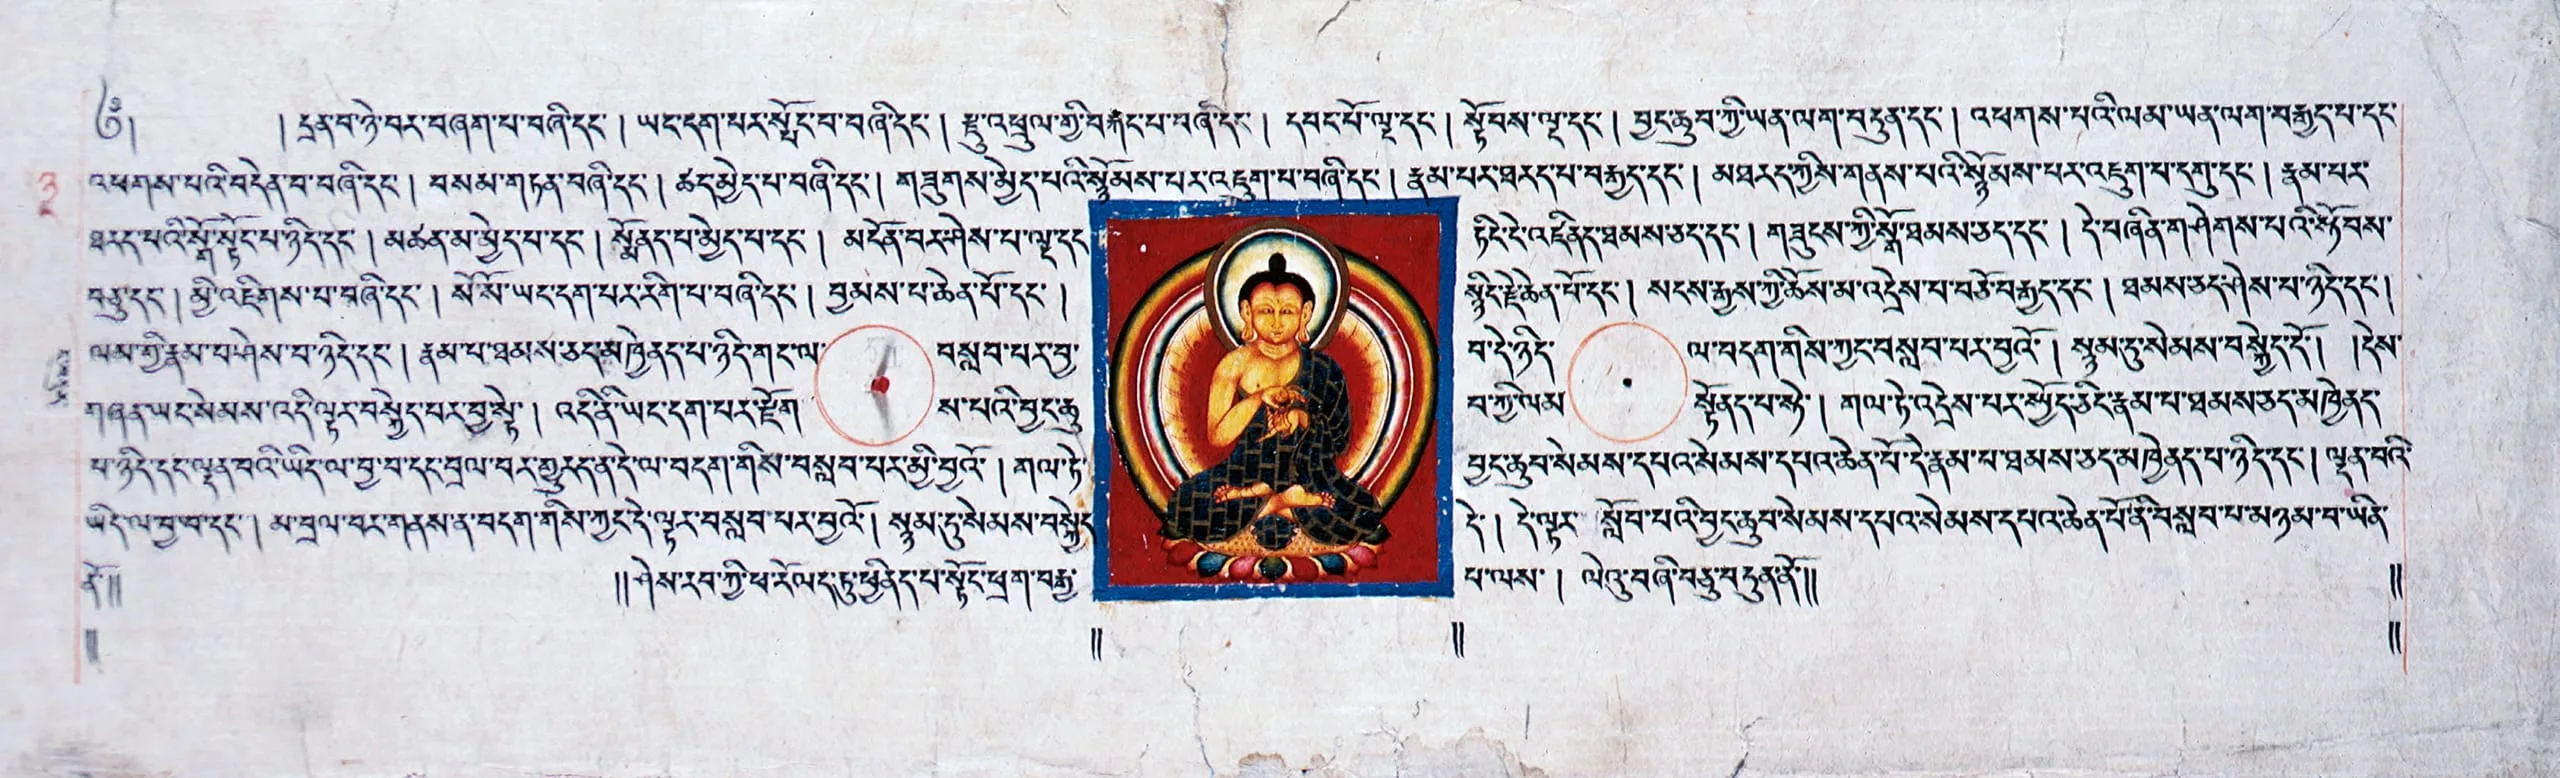 ༄། །དྲན་བ་ཉེ་བར་བཞག་པ་བཞི་དང་། ཡང་དག་པར་སྤོང་བ་བཞི་དང་། རྫུ་འཕྲུལ་གྱི་རྐང་པ་བཞི་དང་། དབང་པོ་ལྔ་དང་། སྟོབས་ལྔ་དང་། བྱང་ཆུབ་ཀྱི་ཡན་ལག་བདུན་དང་། འཕགས་པའི་ལམ་ཡན་ལག་བརྒྱད་པ་དང་
འཕགས་པའི་བདེན་བ་བཞི་དང་། བསམ་གཏན་བཞི་དང་། ཚད་མྱེད་པ་བཞི་དང་། གཟུགས་མྱེད་པའི་སྙོམས་པར་འཇུག་པ་བཞི་དང་། རྣམ་པར་ཐརད་པ་བརྒྱད་དང་། མཐརད་ཀྱིས་གནས་པའི་སྙོམས་པར་འཇུག་པ་དགུ་དང་། རྣམ་པར་
ཐརད་པའི་སྒོ་སྟོང་པ་ཉིད་དང་། མཚན་མ་མྱེད་པ་དང་། སྨོནད་པ་མྱེད་པ་དང་། མངོན་བར་ཤེས་པ་ལྔ་དང་ ཏིང་ངེ་འཛིནད་ཐམས་ཅད་དང་། གཟུངས་ཀྱི་སྒོ་ཐམས་ཅད་དང་། དེ་བཞིན་གཤེགས་པའི་སྟོབས་
བཅུ་དང་། མྱི་འཇིགས་པ་བཞི་དང་། སོ་སོ་ཡང་དག་པར་རིག་པ་བཞི་དང་། བྱམས་པ་ཆེན་པོ་དང་། སྙིང་རྗེ་ཆེན་པོ་དང་། སངས་རྒྱས་ཀྱི་ཆོས་མ་འདྲེས་པ་བཅོ་བརྒྱད་དང་། ཐམས་ཅད་ཤེས་པ་ཉིད་དང་།
ལམ་གྱི་རྣམ་པ་ཤེས་པ་ཉིད་དང་། རྣམ་པ་ཐམས་ཅད་མཁྱེནད་པ་ཉིད་གང་ལ་ བསླབ་པར་བྱ་ བ་དེ་ཉིད་ ལ་བདག་གིས་ཀྱང་བསླབ་པར་བྱའོ་། སྙམ་དུ་སེམས་བསྐྱེད་དོ་། །དེས་
གཞན་ཡང་སེམས་འདི་ལྟར་བསྐྱེད་པར་བྱ་སྟེ་། འདི་ནི་ཡང་དག་པར་རྫོག ས་པའི་བྱང་ཆུ བ་ཀྱི་ལམ སྟོནད་པ་སྟེ་། གལ་ཏེ་འདྲེས་པར་སྤྱོད་ཅིང་རྣམ་པ་ཐམས་ཅད་མཁྱེནད་
པ་ཉིད་དང་ལྡན་བའི་ཡིད་ལ་བྱ་བ་དང་བྲལ་བར་གྱུརད་ན་དེ་ལ་བདག་གིས་བསླབ་པར་མྱི་བྱའོ་། གལ་ཏེ་ བྱང་ཆུབ་སེམས་དཔའ་སེམས་དཔའ་ཆེན་པོ་དེ་རྣམ་པ་ཐམས་ཅད་མཁྱེནད་པ་ཉིད་དང་། ལྡན་བའི་
ཡིད་ལ་བྱ་བ་དང་། མ་བྲལ་བར་གནས་ན་བདག་གིས་ཀྱང་དེ་ལྟར་བསླབ་པར་བྱའོ་། སྙམ་དུ་སེམས་བསྐྱེད དེ་། དེ་ལྟར་ སློབ་པའི་བྱང་ཆུབ་སེམས་དཔའ་སེམས་དཔའ་ཆེན་པོ་ནི་བསླབ་པ་མཉམ་བ་ཡིན་
ནོ་༎ ༎ཤེས་རབ་ཀྱི་ཕ་རོལད་ཏུ་ཕྱིནད་པ་སྟོང་ཕྲག་བརྒྱ་ པ་ལས་། ལེའུ་བཞི་བཅུ་བདུན་ནོ་༎ ༎
༎ ༎ ༎ ༎